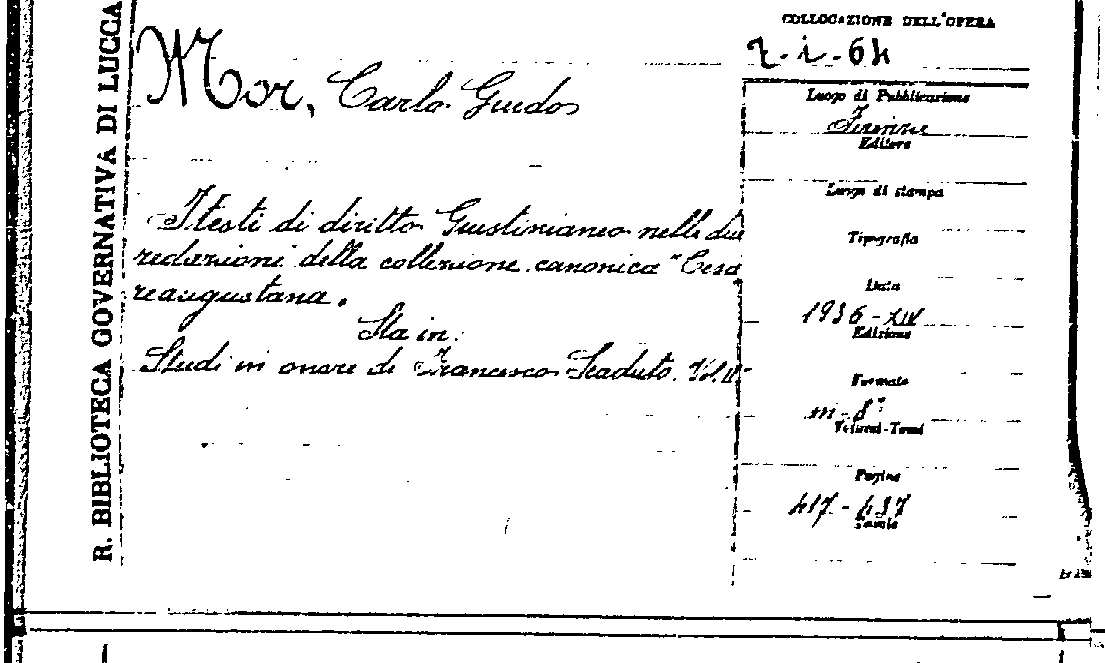 R. BIBLIOTECA GOVERNATIVA DI LUCCA
Mor, Carlo Guido
I testi di diritto Giustinianeo nelle due
redazioni della collezione canonica "Cesa
reaugustana.
Sta in:
Studi in onore di Francesco Scaduto. Vol. II-
COLLOCAZIONE DELL'OPERA
Luogo di Pubblicazione
Firenze
Editore
Luogo di stampa
Tipografia
Data
1936-XIV
Edizione
Formato
in-8°
Volumi-Tomi
Pagine
417-437
Tavole